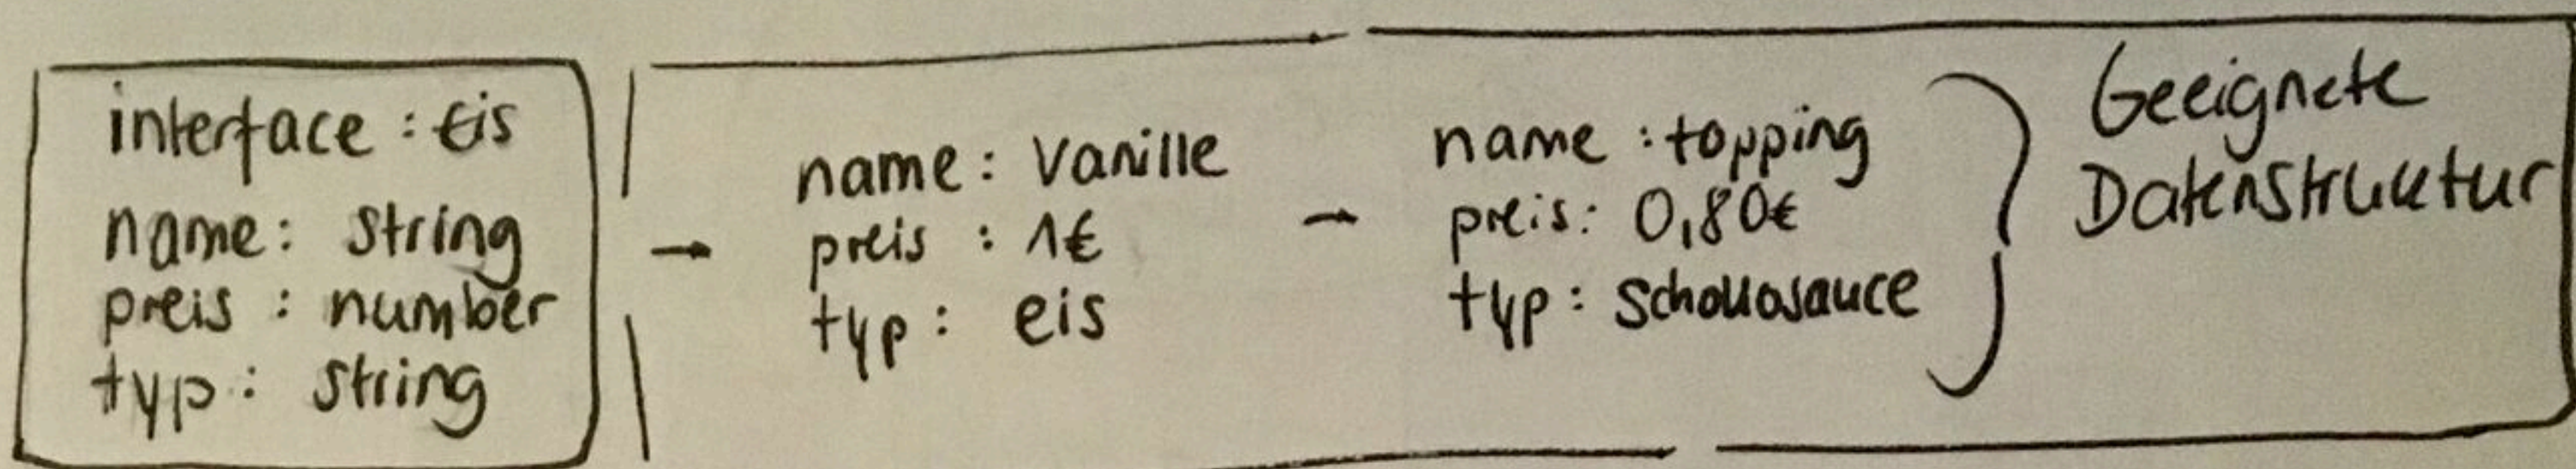 interface : Eis
name: string
preis : number
typ: string
→
name: Vanille
preis : 1€
typ: eis
→
name : topping
preis: 0,80€
typ: Schokosauce
Geeignete
Datenstruktur